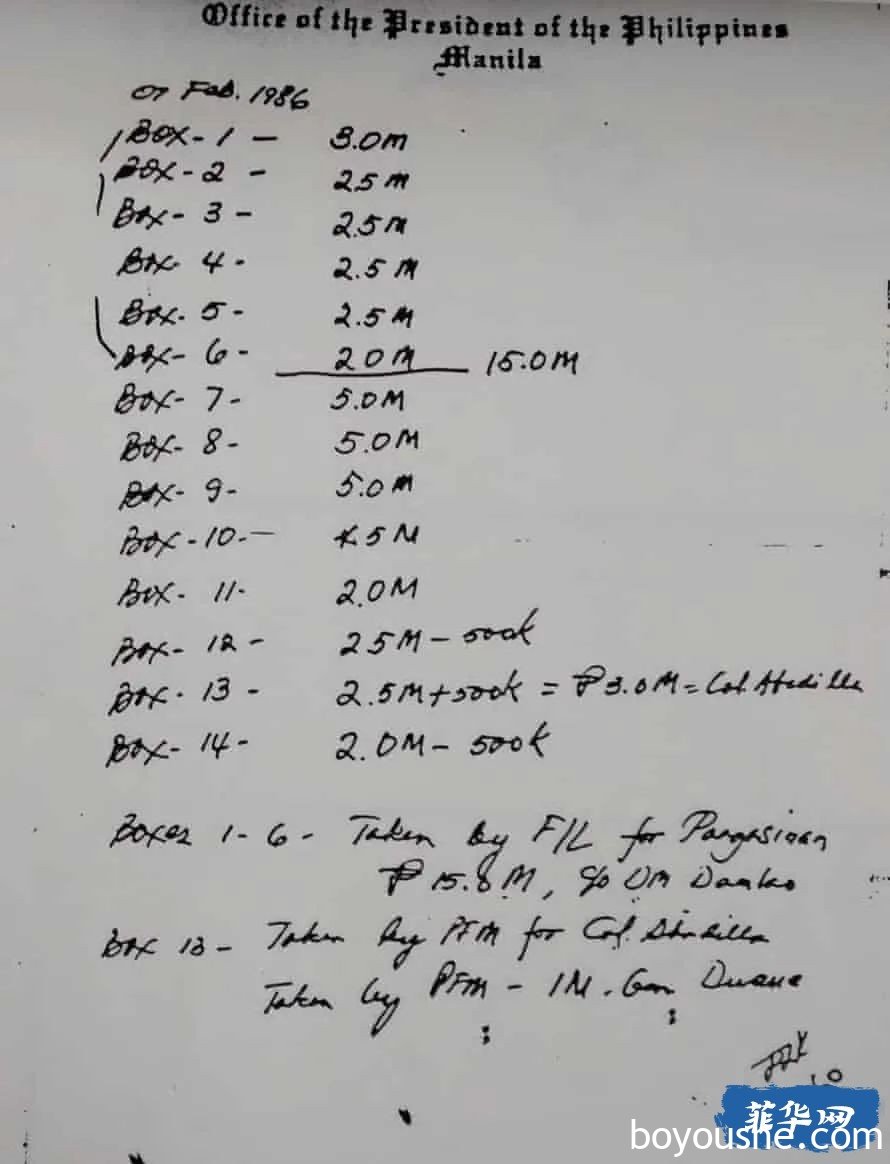 Office of the President of the Philippines
Manila
07 Feb. 1986
Box - 1 - 3.0M
Box - 2 - 2.5M
Box - 3 - 2.5M
Box 4 - 2.5M
Box - 5 - 2.5M
Box - 6 - 2.0M 15.0M
Box - 7 - 5.0M
Box - 8 - 5.0M
Box - 9 - 5.0M
Box - 10 - 5M
Box - 11 - 2.0M
Box - 12 - 2.5M - 500K
Box - 13 - 2.5M + 500K = ₱3.0M = Col. Abadilla
Box - 14 - 2.0M - 500K
Boxes 1 - 6 - Taken by F/L for Pangasinan
₱ 15.0M, c/o
Box 13 - Taken by PFM for Col. Abadilla
Taken by PFM - 1M. Gen
菲华网
boyoushe.com